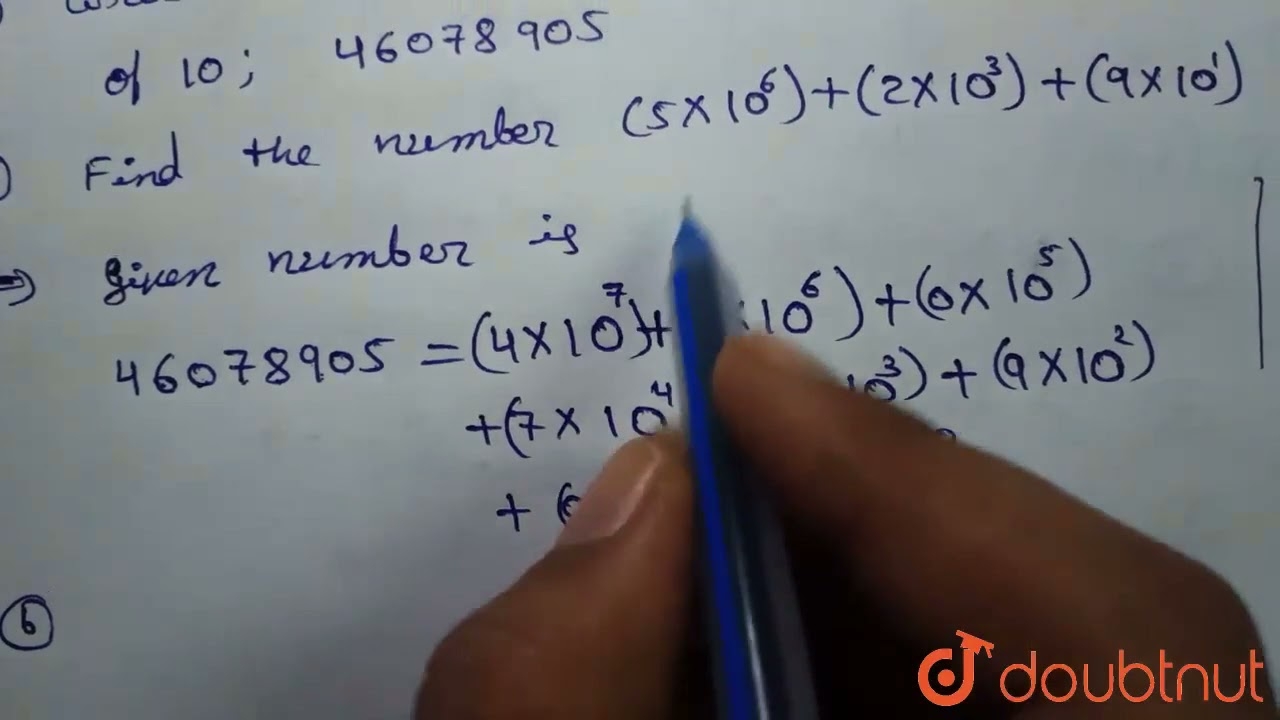 of 10; 46078905
) Find the number (5×10⁶)+(2×10³)+(9×10¹)
⇒ Given number is
46078905 = (4×10⁷)+ ×10⁶)+(0×10⁵)
+(7×10⁴ 10³)+(9×10²)
+ (
6
doubtnut